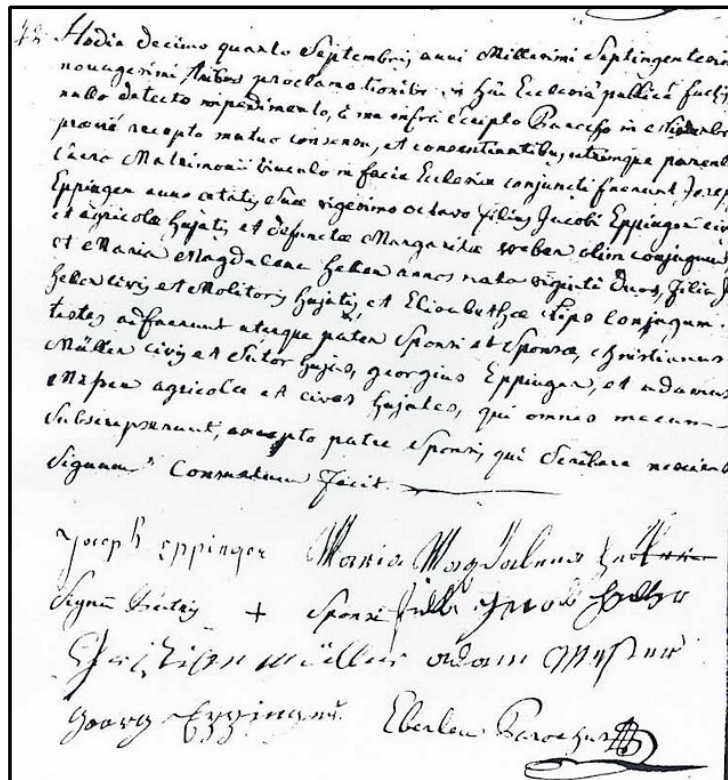 42. Hodie decimo quarto Septembris anni Millesimi Septingentesi
nonagesimi tribus proclamationibus in hac Ecclesia publice factis
nullo detecto impedimento, à me infra scripto Parocho in
praevie recepto mutuo consensu, et consentientibus utrimque parent
Sacro Matrimonii vinculo in facie Ecclesiae conjuncti fuerunt Josep
Eppinger anno aetatis suae vigesimo octavo filius Jacobi Eppinger civ
et agricolae hujatis et defunctae Margaritae weber olim conjugum
et Maria Magdalena annos nata viginti duos, filia
civis et Molitoris hujatis, et Elisabethae conjugum.
testes adfuerunt uterque pater Sponsi et Sponsae, christianus
Müller civis et Sutor hujas, georgius Eppinger, et adamus
agricolae et cives hujates, qui omnes mecum
Subscripserunt, excepto patre Sponsi, qui Scribere nescien
Signum Consuetum fecit.
Joseph Eppinger Maria Magdalena
Signū Patris + Sponsi Jacob
Müller adam
Georg Eppinger Eberlen Parochus